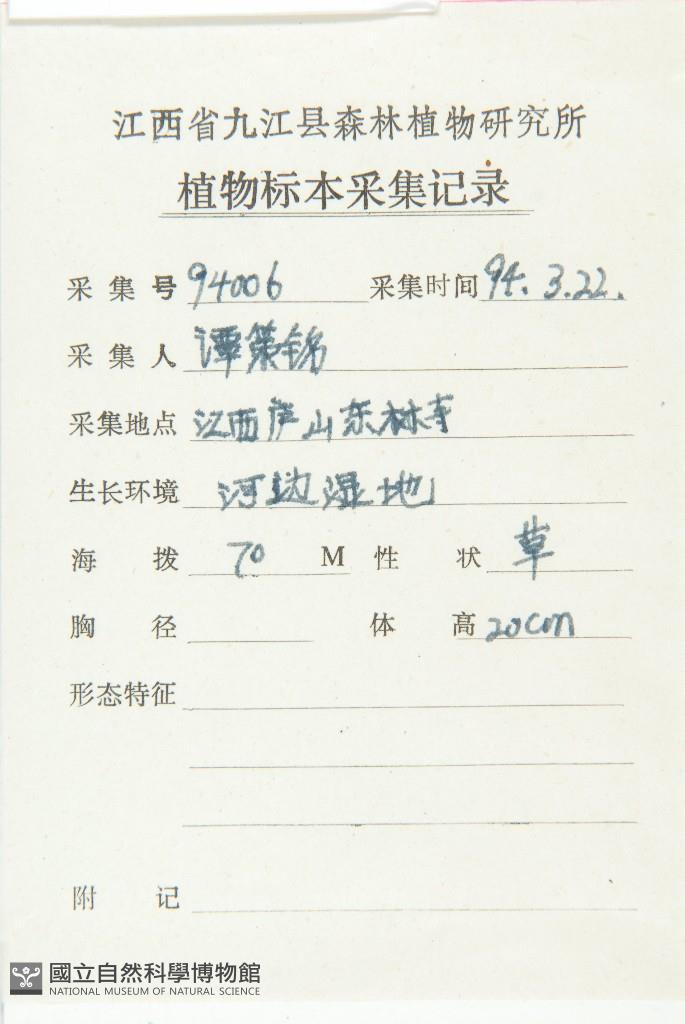 江西省九江县森林植物研究所
植物标本采集记录
采集号 94006 采集时间 94.3.22.
采集人 谭策铭
采集地点 江西庐山东林寺
生长环境 河边湿地
海拨 70 M 性状 草
胸径 体高 20cm
形态特征
附记
國立自然科學博物館
NATIONAL MUSEUM OF NATURAL SCIENCE